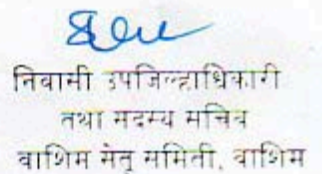 निवासी उपजिल्हाधिकारी
तथा सदस्य सचिव
वाशिम सेतू समिती, वाशिम